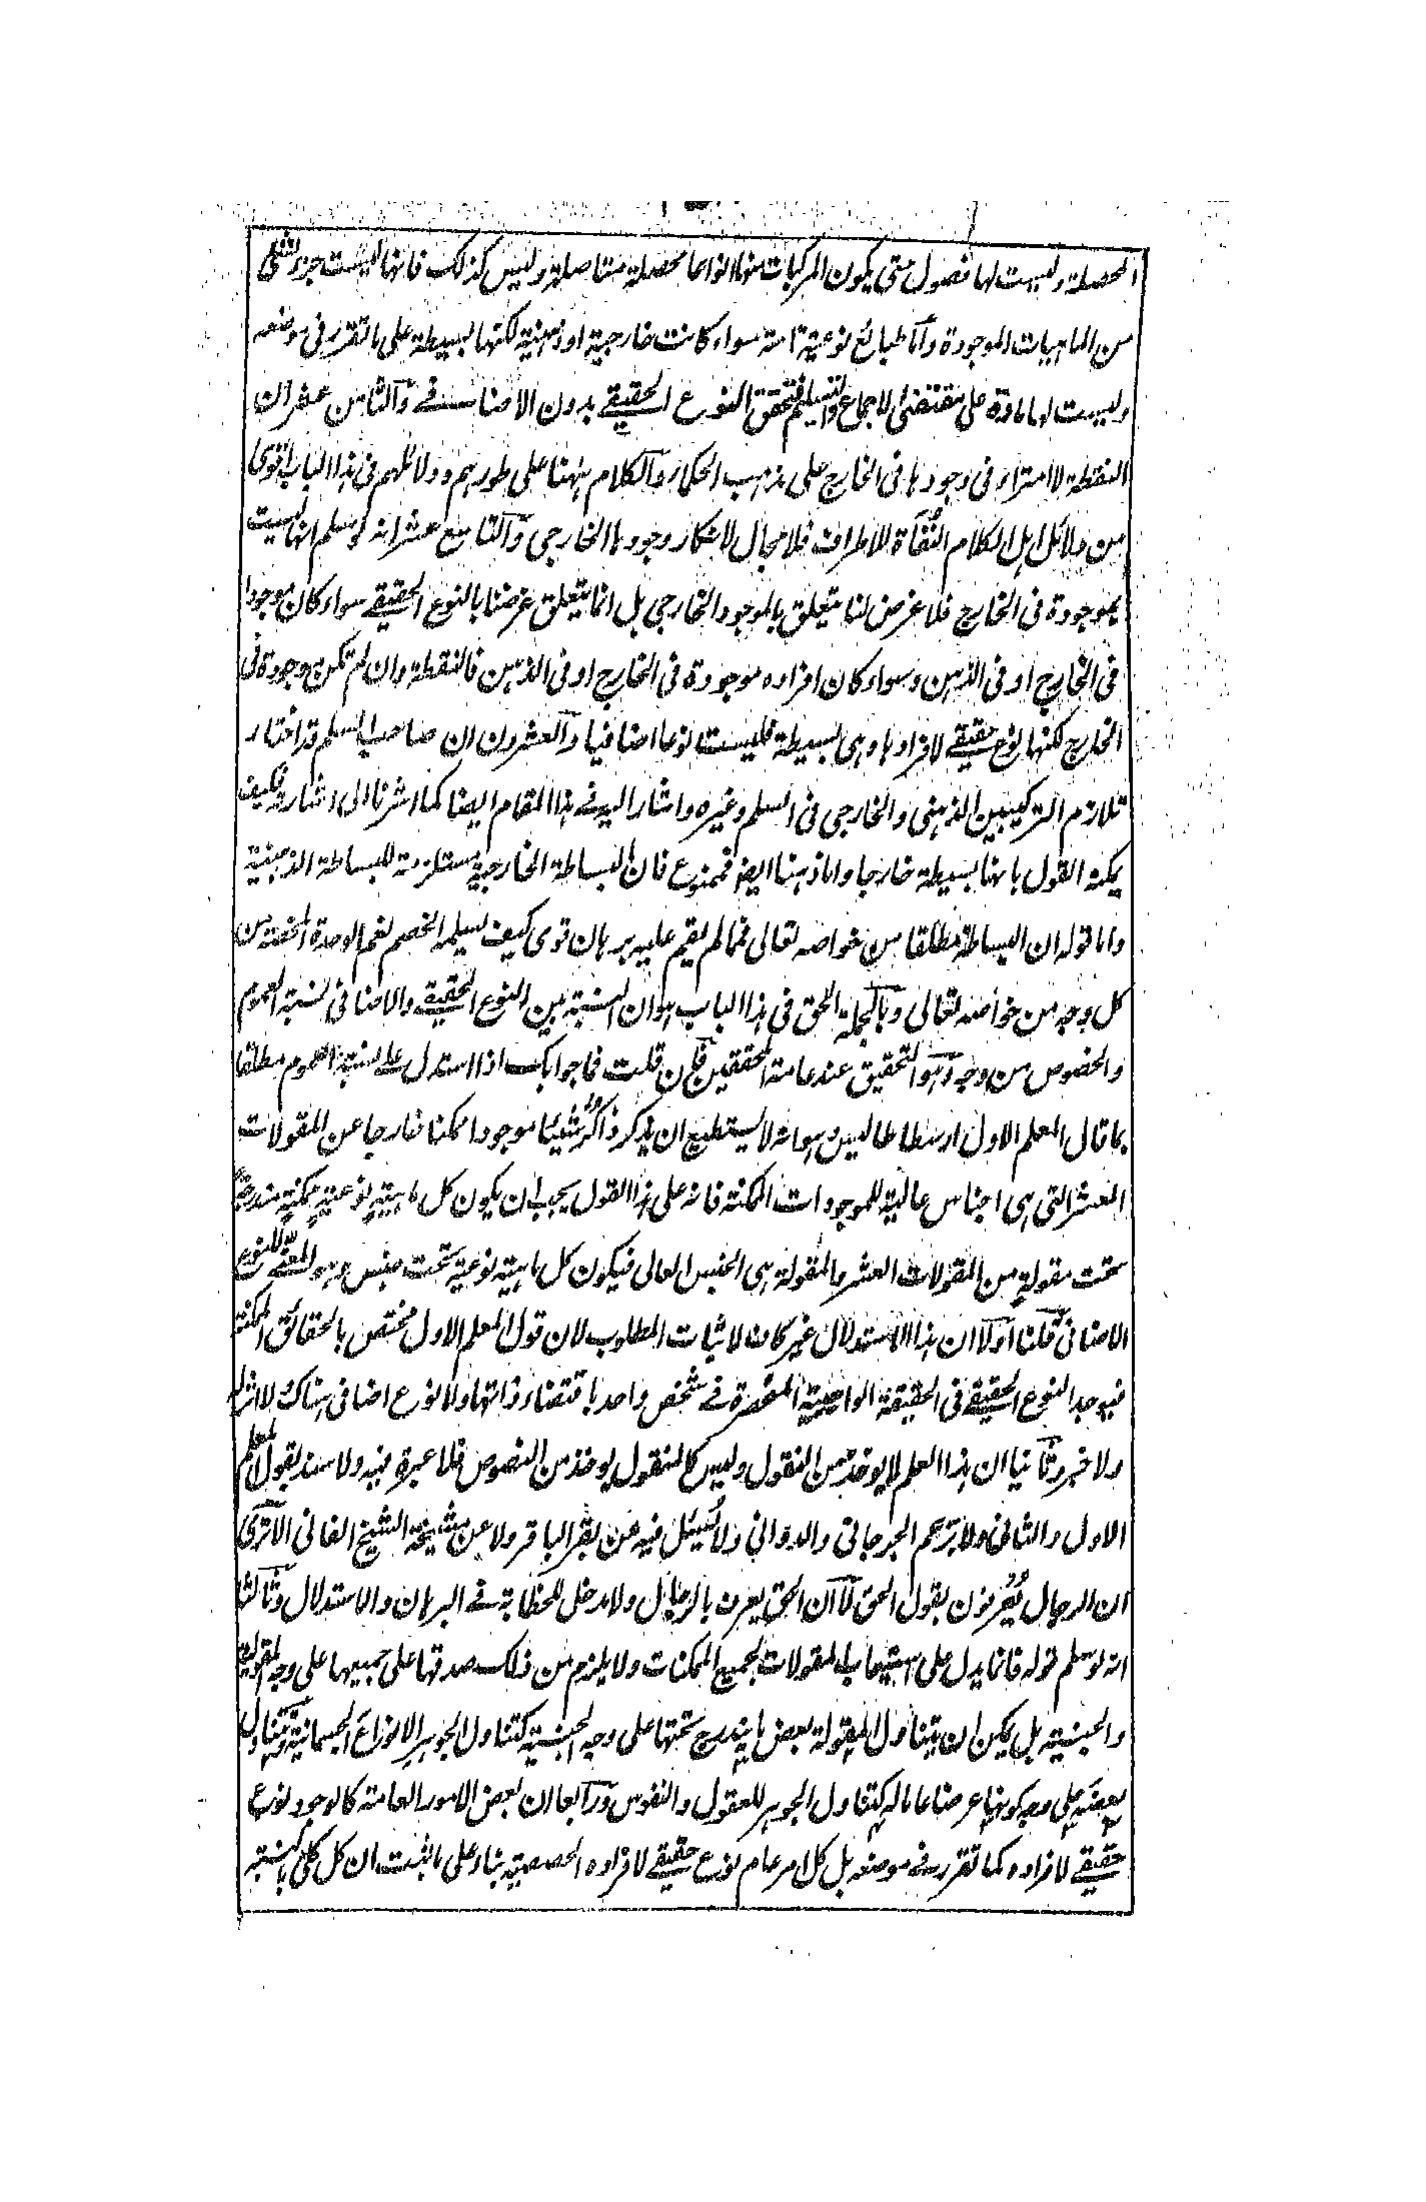 المحصلة وليست لها فصول متى يكون المركبات منها انواعا محصلة متاصلة وليس كذلك فانها ليست جزء لشئ
من الماهيات الموجودة واما طبائع نوعية تامة سواء كانت خارجية او ذهنية لكنها بسيطة على ما تقرر فى موضعه
وليست لها مادة على مقتضى الاجماع والتسليم فتحقق النوع الحقيقے بدون الاضافے والثامن عشر ان
النقطة لا امتراء فى وجودها فى الخارج على مذهب الحكماء والكلام ههنا على طورهم ودلائلهم فى هذا الباب اقوى
من دلائل اهل الكلام النفاة للاطراف فلا مجال لانكار وجودها الخارجى والتاسع عشر انه لو سلم انها ليست
بموجودة فى الخارج فلا غرض لنا يتعلق بالموجود الخارجى بل انما يتعلق غرضنا بالنوع الحقيقے سواء كان موجودا
فى الخارج او فى الذهن وسواء كان افراده موجودة فى الخارج او فى الذهن فالنقطة وان لم تكن موجودة فى
الخارج لكنها نوع حقيقے لافرادها وهى بسيطة فليست نوعا اضافيا والعشرون ان صاحب السلم قد اختار
تلازم التركيبين الذهنى والخارجى فى السلم وغيره واشار اليه فے هذا المقام ايضا كما اشرنا الى اشارته فكيف
يمكنه القول بانها بسيطة خارجا واما ذهنا ايضا فممنوع فان البساطة الخارجية مستلزمة للبساطة الذهنية
واما قوله ان البساطة مطلقا من خواصه تعالى فمما لم يقم عليه برهان قوى كيف يسلمه الخصم نعم الوحدة المحضة من
كل وجه من خواصه تعالى وبالجملة الحق فى هذا الباب هو ان النسبة بين النوع الحقيقے والاضافى نسبة العموم
والخصوص من وجه وهو التحقيق عند عامة المحققين فان قلت فما جوابك اذا استدل على نسبة العموم مطلقا
بما قال المعلم الاول ارسطاطاليس وهو انه لا يستطيع ان يذكر ذاكر شيئا موجودا ممكنا خارجا عن المقولات
العشر التى هى اجناس عالية للموجودات الممكنة فانه على هذا القول يجب ان يكون كل ماهية نوعية ممكنة مندرجة
تحت مقولة من المقولات العشر والمقولة هى الجنس العالى فيكون كل ماهية نوعية تحت جنس وهو المعنے للنوع
الاضافى قلنا اولا ان هذا الاستدلال غير كاف لاثبات المطلوب لان قول المعلم الاول مختص بالحقائق الممكنة
فيوجد النوع الحقيقے فى الحقيقة الواجبية المنحصرة فے شخص واحد باقتضاء ذاتها ولا نوع اضافى هناك لا اثر له
ولا خبر وثانيا ان هذا العلم لا يوخذ من النقول وليس كالمنقول يوخذ من النصوص فلا عبرة فيه ولا سند بقول المعلم
الاول والثانى ولا برسم الجرجانى والدوانى ولا يسئل فيه عن بقر الباقر ولا عن مشيخة الشيخ الفانى الا ترى
ان الرجال يعرفون بقول الحق لا ان الحق يعرف بالرجال ولا مدخل للخطابة فے البرهان والاستدلال وثالثا
انه لو سلم قوله فانما يدل على استيعاب المقولات لجميع الممكنات ولا يلزم من ذلك صدقها على جميعها على وجه المقولية
والجنسية بل يمكن ان يتناول المقولة بعض ما يندرج تحتها على وجه الجنسية كتناول الجوهر الانواع الجسمانية ويتناول
بعضه على وجه كونها عرضا عاما له كتناول الجوهر للعقول والنفوس ورابعا ان بعض الامور العامة كالوجود نوع
حقيقے لافراده كما تقرر فے موضعه بل كل امر عام نوع حقيقے لافراده الحصصية بناء على ما ثبت ان كل كلى بالنسبة